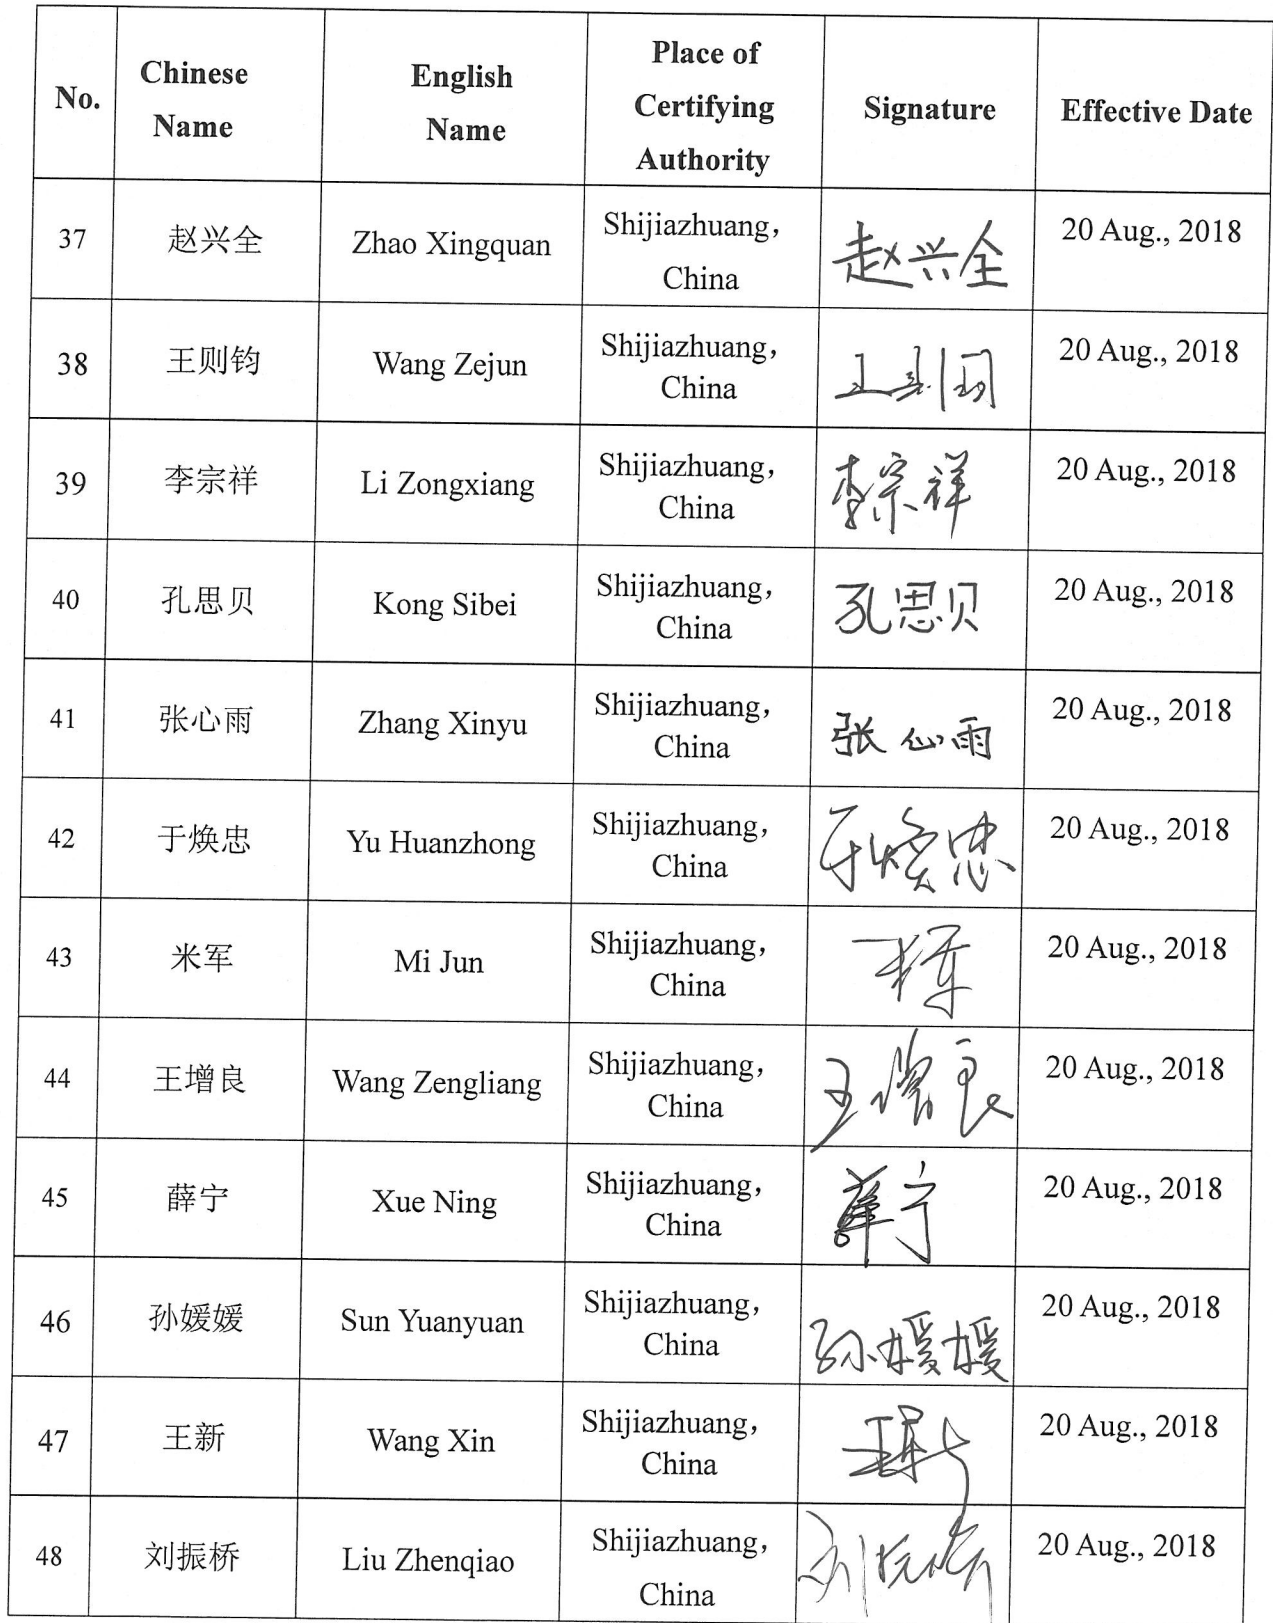 No.
Chinese
Name
English
Name
Place of
Certifying
Authority
Signature
Effective Date
37
赵兴全
Zhao Xingquan
Shijiazhuang，
China
赵兴全
20 Aug., 2018
38
王则钧
Wang Zejun
Shijiazhuang，
China
20 Aug., 2018
39
李宗祥
Li Zongxiang
Shijiazhuang，
China
李宗祥
20 Aug., 2018
40
孔思贝
Kong Sibei
Shijiazhuang，
China
孔思贝
20 Aug., 2018
41
张心雨
Zhang Xinyu
Shijiazhuang，
China
张心雨
20 Aug., 2018
42
于焕忠
Yu Huanzhong
Shijiazhuang，
China
于焕忠
20 Aug., 2018
43
米军
Mi Jun
Shijiazhuang，
China
米军
20 Aug., 2018
44
王增良
Wang Zengliang
Shijiazhuang，
China
王增良
20 Aug., 2018
45
薛宁
Xue Ning
Shijiazhuang，
China
薛宁
20 Aug., 2018
46
孙媛媛
Sun Yuanyuan
Shijiazhuang，
China
孙媛媛
20 Aug., 2018
47
王新
Wang Xin
Shijiazhuang，
China
王新
20 Aug., 2018
48
刘振桥
Liu Zhenqiao
Shijiazhuang，
China
刘振桥
20 Aug., 2018